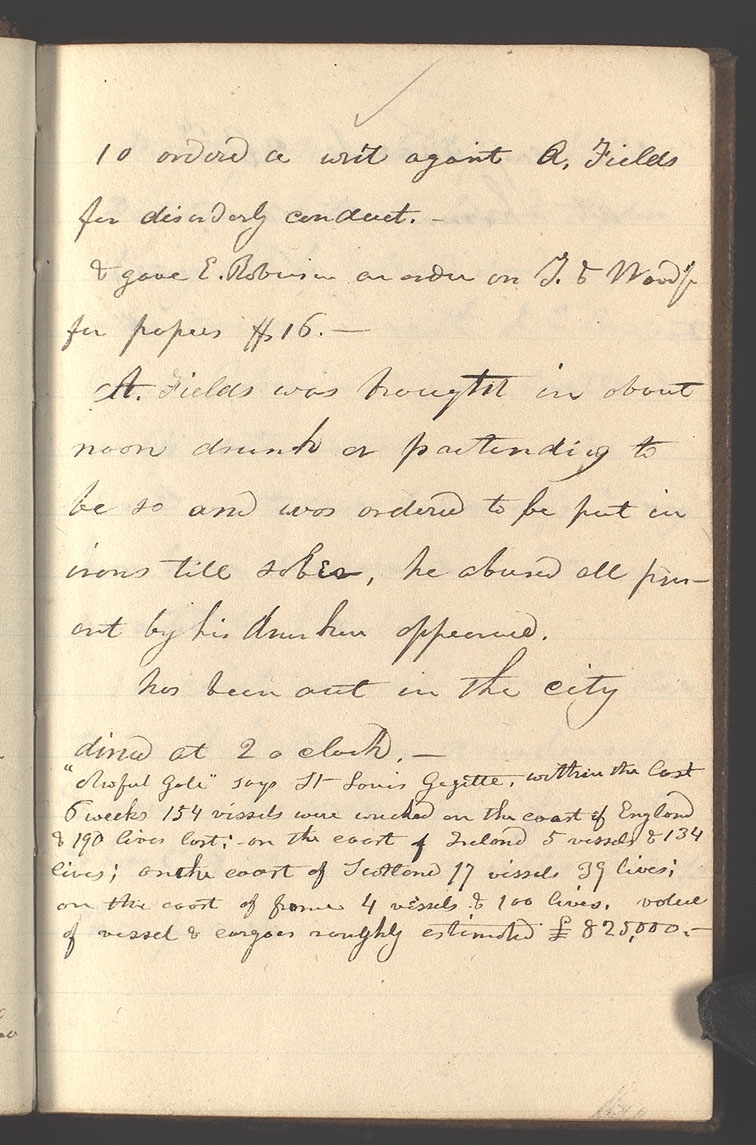 10 ordered a writ against A. Fields
for disorderly conduct. —
& gave E. Robinson an order on T. & Woods
for papers $16. —
A. Fields was brought in about
noon drunk or pretending to
be so and was ordered to be put in
irons till sober, he abused all pres—
ent by his drunken appearance.
has been out in the city
dined at 2 o clock. —
"Awful Gale" says St Louis Gazette, within the last
6 weeks 154 vissels were wrecked on the coast of England
& 190 lives lost; — on the coast of Ireland 5 vessels & 134
lives; on the coast of Scotland 17 vissels 39 lives;
on the coast of france 4 vissels & 100 lives. value
of vessel & cargoes roughly estimated £ 825,000. —